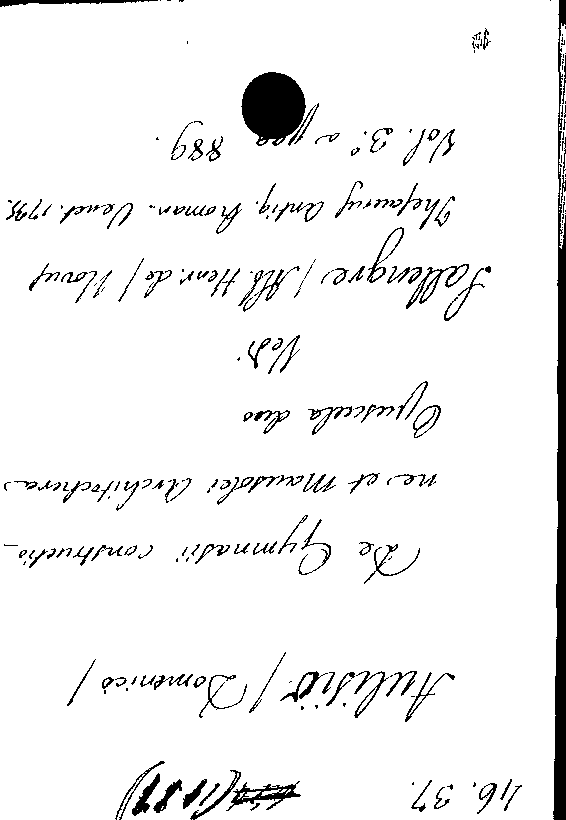 46.37. (1187)
Aulisio / Domenico /
De Gymnasii constructio-
ne et Mausolei Architectura
Opuscula duo
Vedi
Sallengre / Alb. Henr. de / Novus
Thesaurus Antiq. Roman. Venet. 1735.
Vol. 3.° a pag 889.